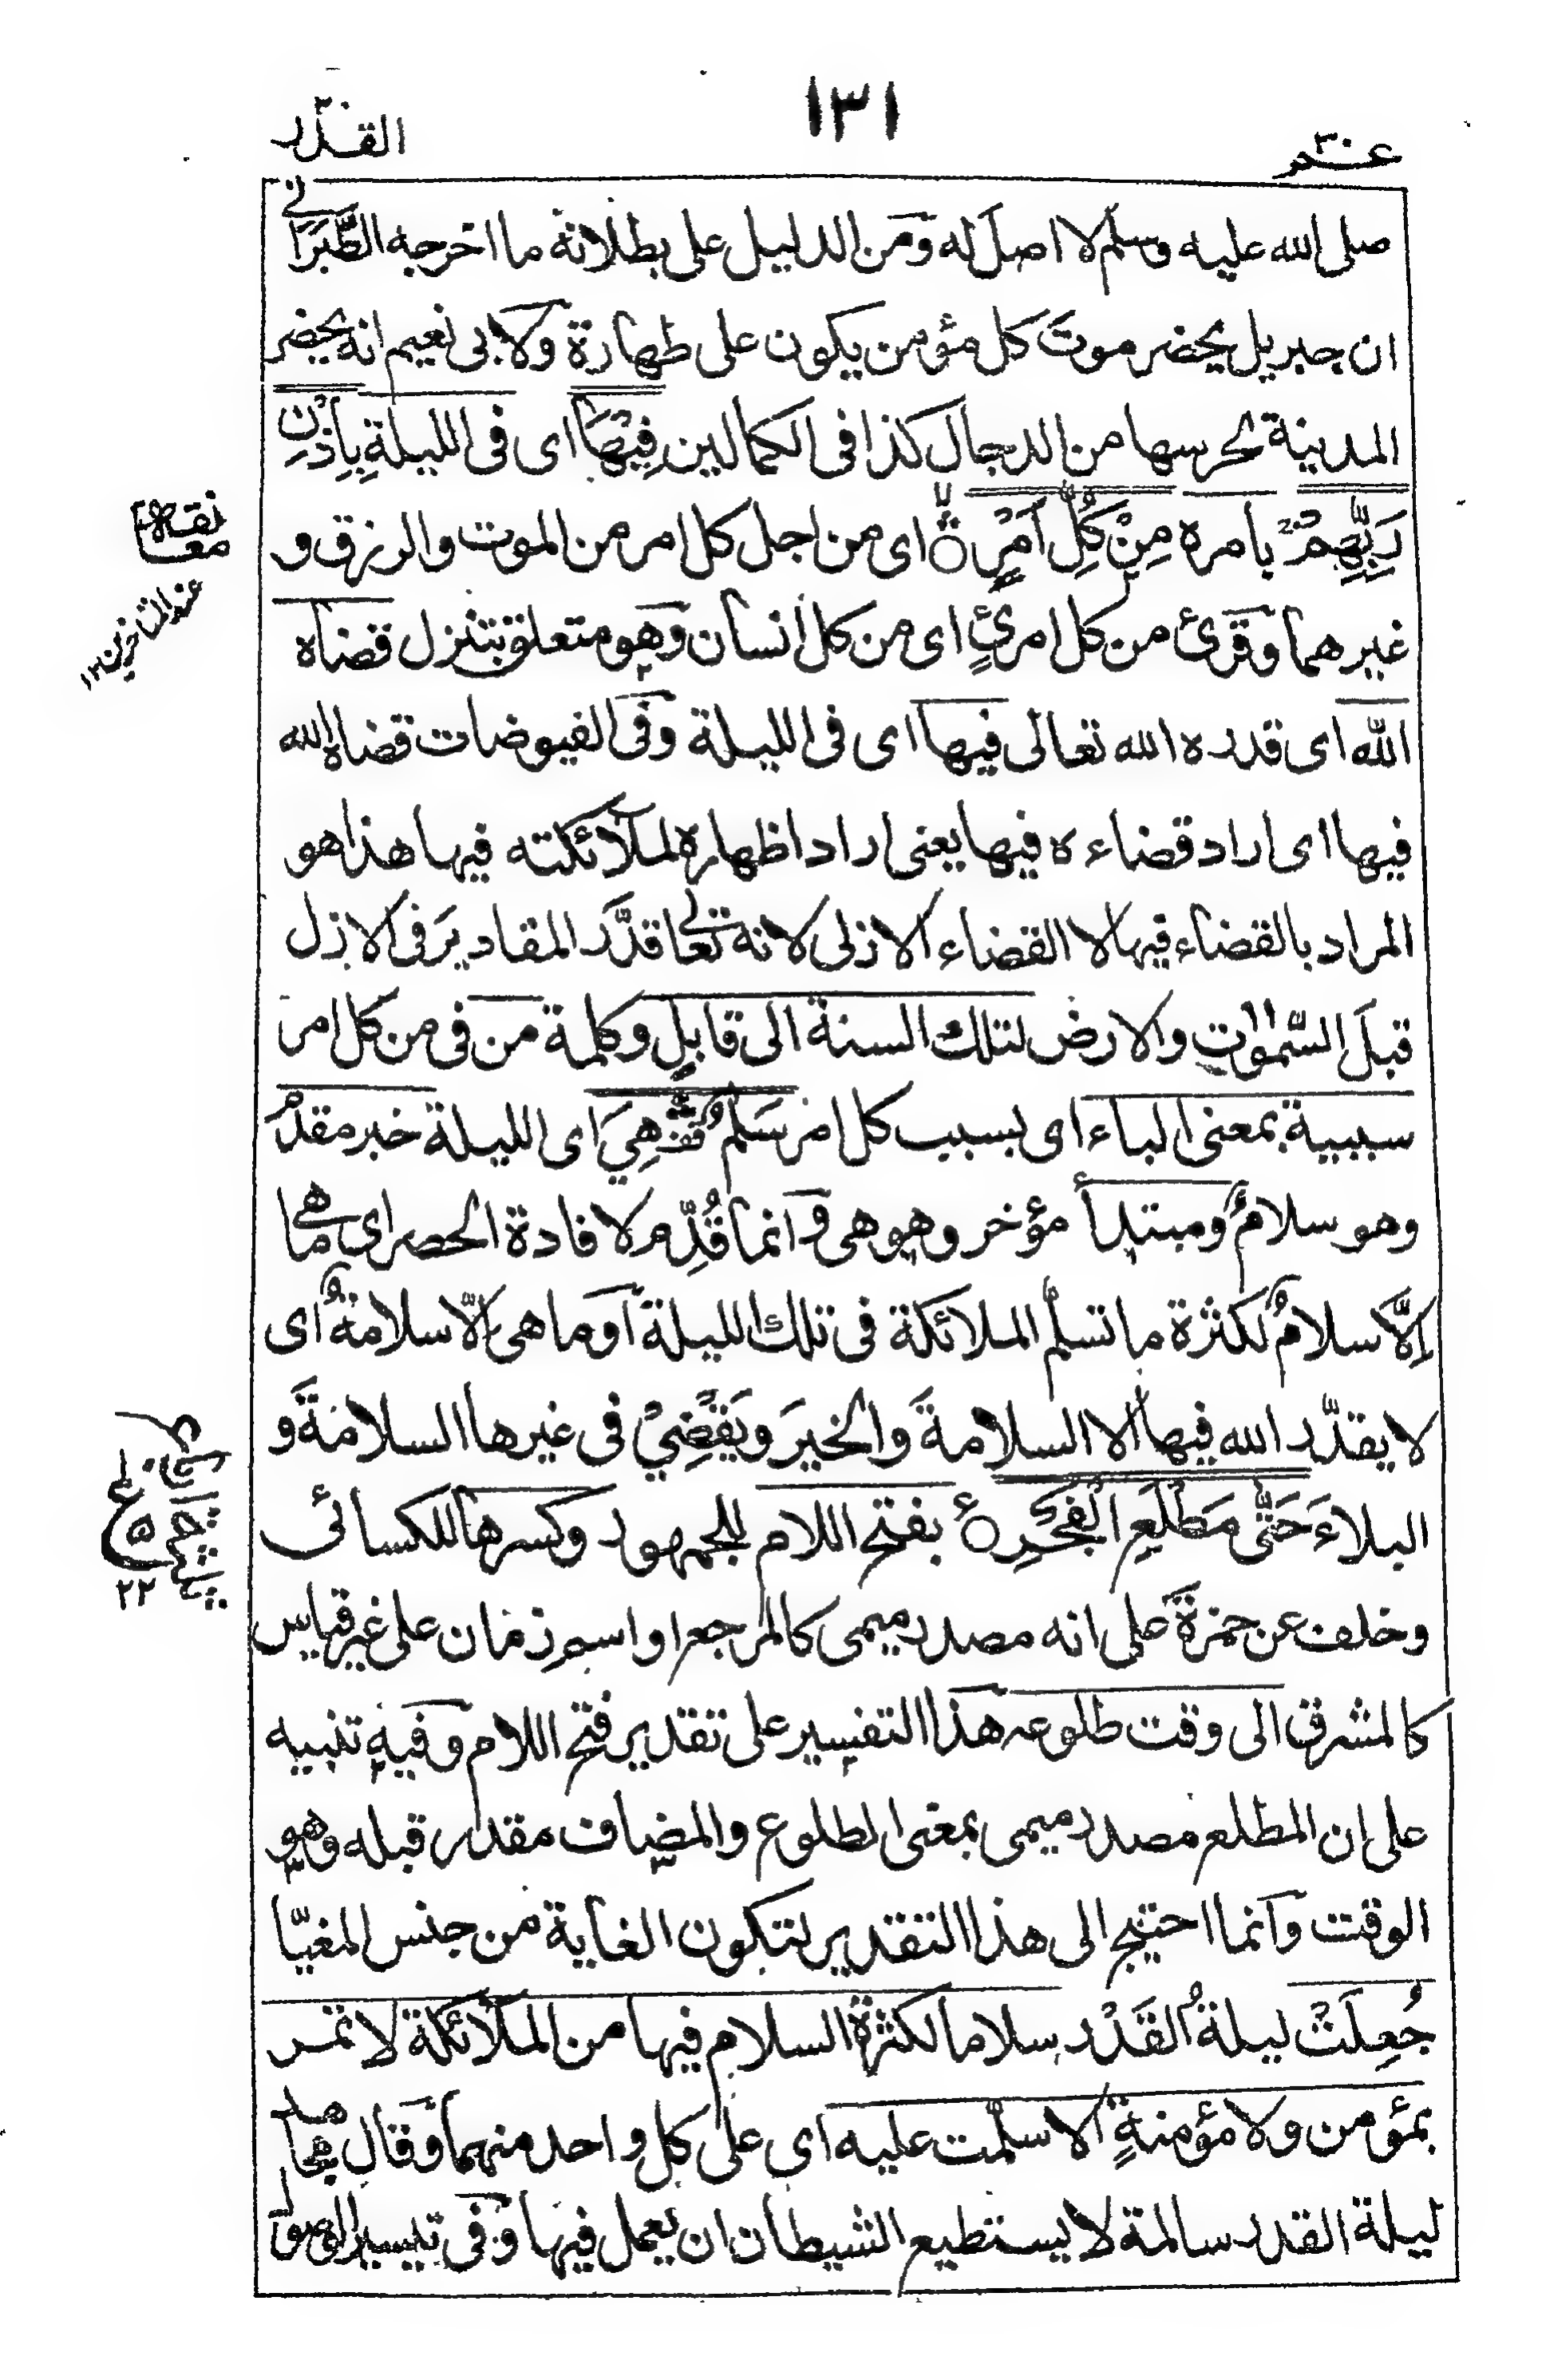 عم ٣٠
١٣١
القدر ٣٠
صلى الله عليه وسلّم لا اصلَ له وَمن الدليل على بطلانه ما اخرجه الطَّبَرَانى
ان جبريل يحضر موتَ كل مؤمن يكون على طهارة وَلابى نعيم انه يحضر
المدينة لحرسها من الدجال كذا فى الكمالين فِيْهَا اى فى الليلةِ بِاِذْنِ
رَبِّهِمْ بامره مِنْ كُلِّ اَمْرٍ اى من اجل كل امر من الموت والرزق و
غيرهما وَقرئ من كل امرئٍ اى من كل انسان وَهو متعلق بتنزل قضاه
الله اى قدره الله تعالى فيها اى فى الليلة وَفى الفيوضات قضاه الله
فيها اى اراد قضاءه فيها يعنى اراد اظهاره لملآئكته فيها هذا هو
المراد بالقضاء فيها لا القضاء الازلى لانه تعالى قدَّر المقاديرَ فى الازل
قبلَ السّمٰوٰت والارض لتلك السنة الى قابلٍ وكلمة من فى من كل امر
سببية بمعنى الباء اى بسبب كل امر سَلٰمٌ هِيَ اى الليلة خبر مقدمٌ
وهو سلامٌ ومبتدأ مؤخر وهو هى وَانما قُدِّم لافادة الحصر اى ما هى
اِلَّا سلامٌ لكثرة ما تسلّم الملائكة فى تلك الليلة اَو ما هى اِلّا سلامةٌ اى
لا يقدّر الله فيها الا السلامةَ والخيرَ ويَقْضِيْ فى غيرها السلامةَ و
البلاءَ حَتّٰى مَطْلَعِ الْفَجْرِ بفتح اللام للجمهور وكسرها للكسائى
وخلف عن حمزةَ على انه مصدر ميمى كالمرجع او اسم زمان على غير قياس
كالمشرق الى وقت طلوعه هذا التفسير على تقدير فتح اللام وَفيه تنبيه
على ان المطلع مصدر ميمى بمعنى الطلوع والمضاف مقدر قبله وهو
الوقت وَانما احتيج الى هذا التقدير لتكون الغاية من جنس المغيّا
جُعِلَتْ ليلةُ القَدْر سلاما لكثرة السلام فيها من الملآئكة لا تمر
بمؤمن ولا مؤمنةٍ الا سلّمت عليه اى على كل واحد منهما وَقال مجاهد
ليلة القدر سالمة لا يستطيع الشيطان ان يعمل فيها وَفى تيسير الوصول
معانقة
عند المتاخرين ١٢
ع
٥
٢٢